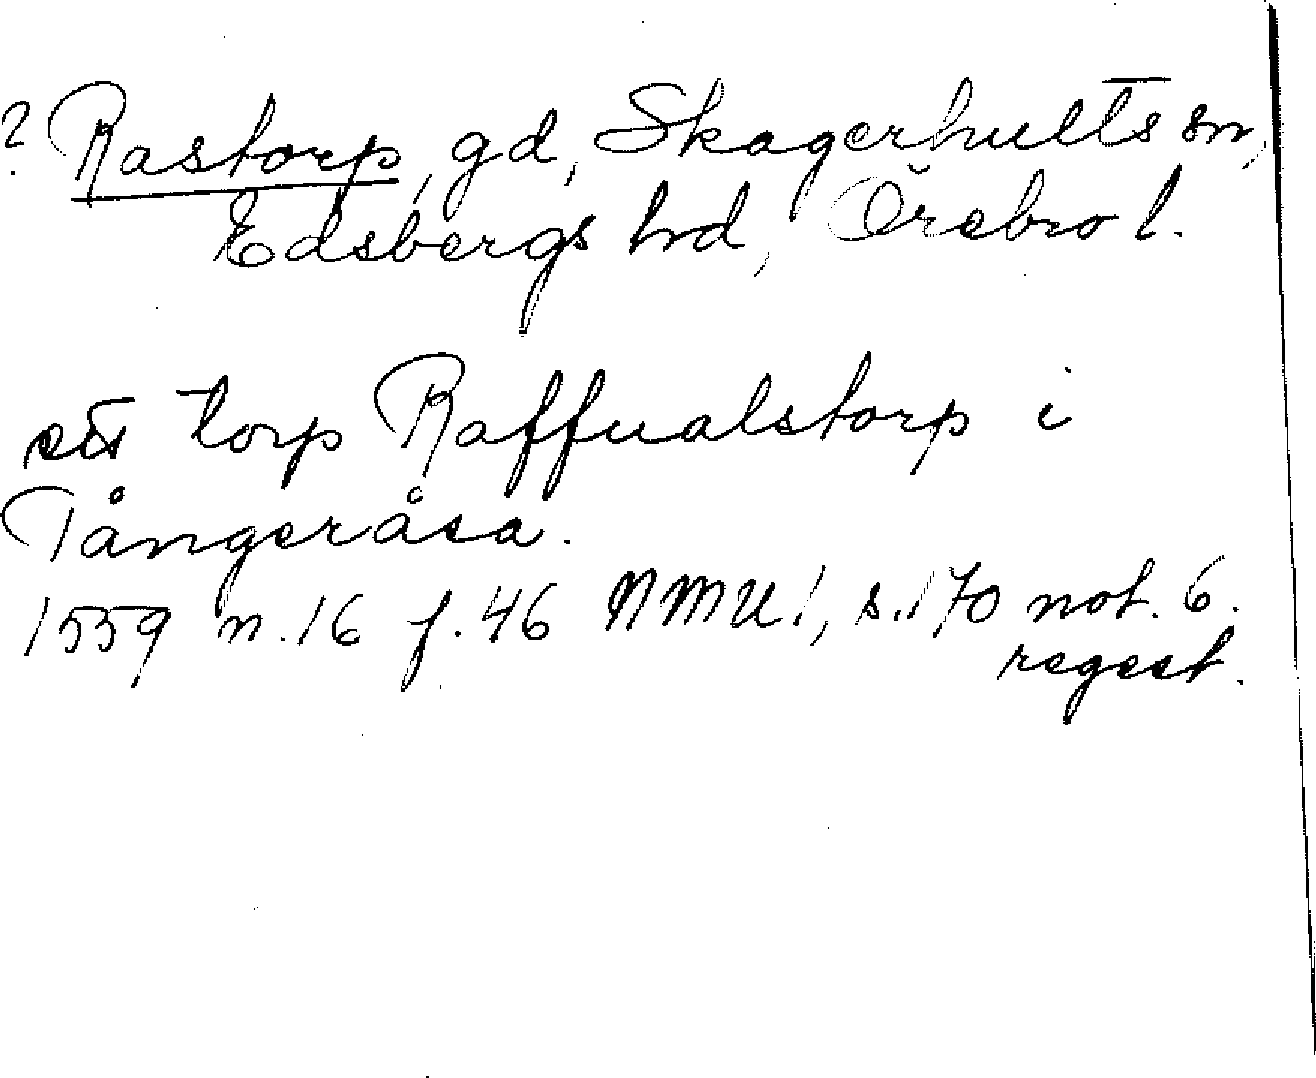 ? Rastorp, gd, Skagerhults sn,
Edsbergs hd, Örebro l.
ett torp Raffualstorp i
Tångeråsa.
1559 n. 16 f. 46 NMU 1, s. 170 not. 6.
regest.